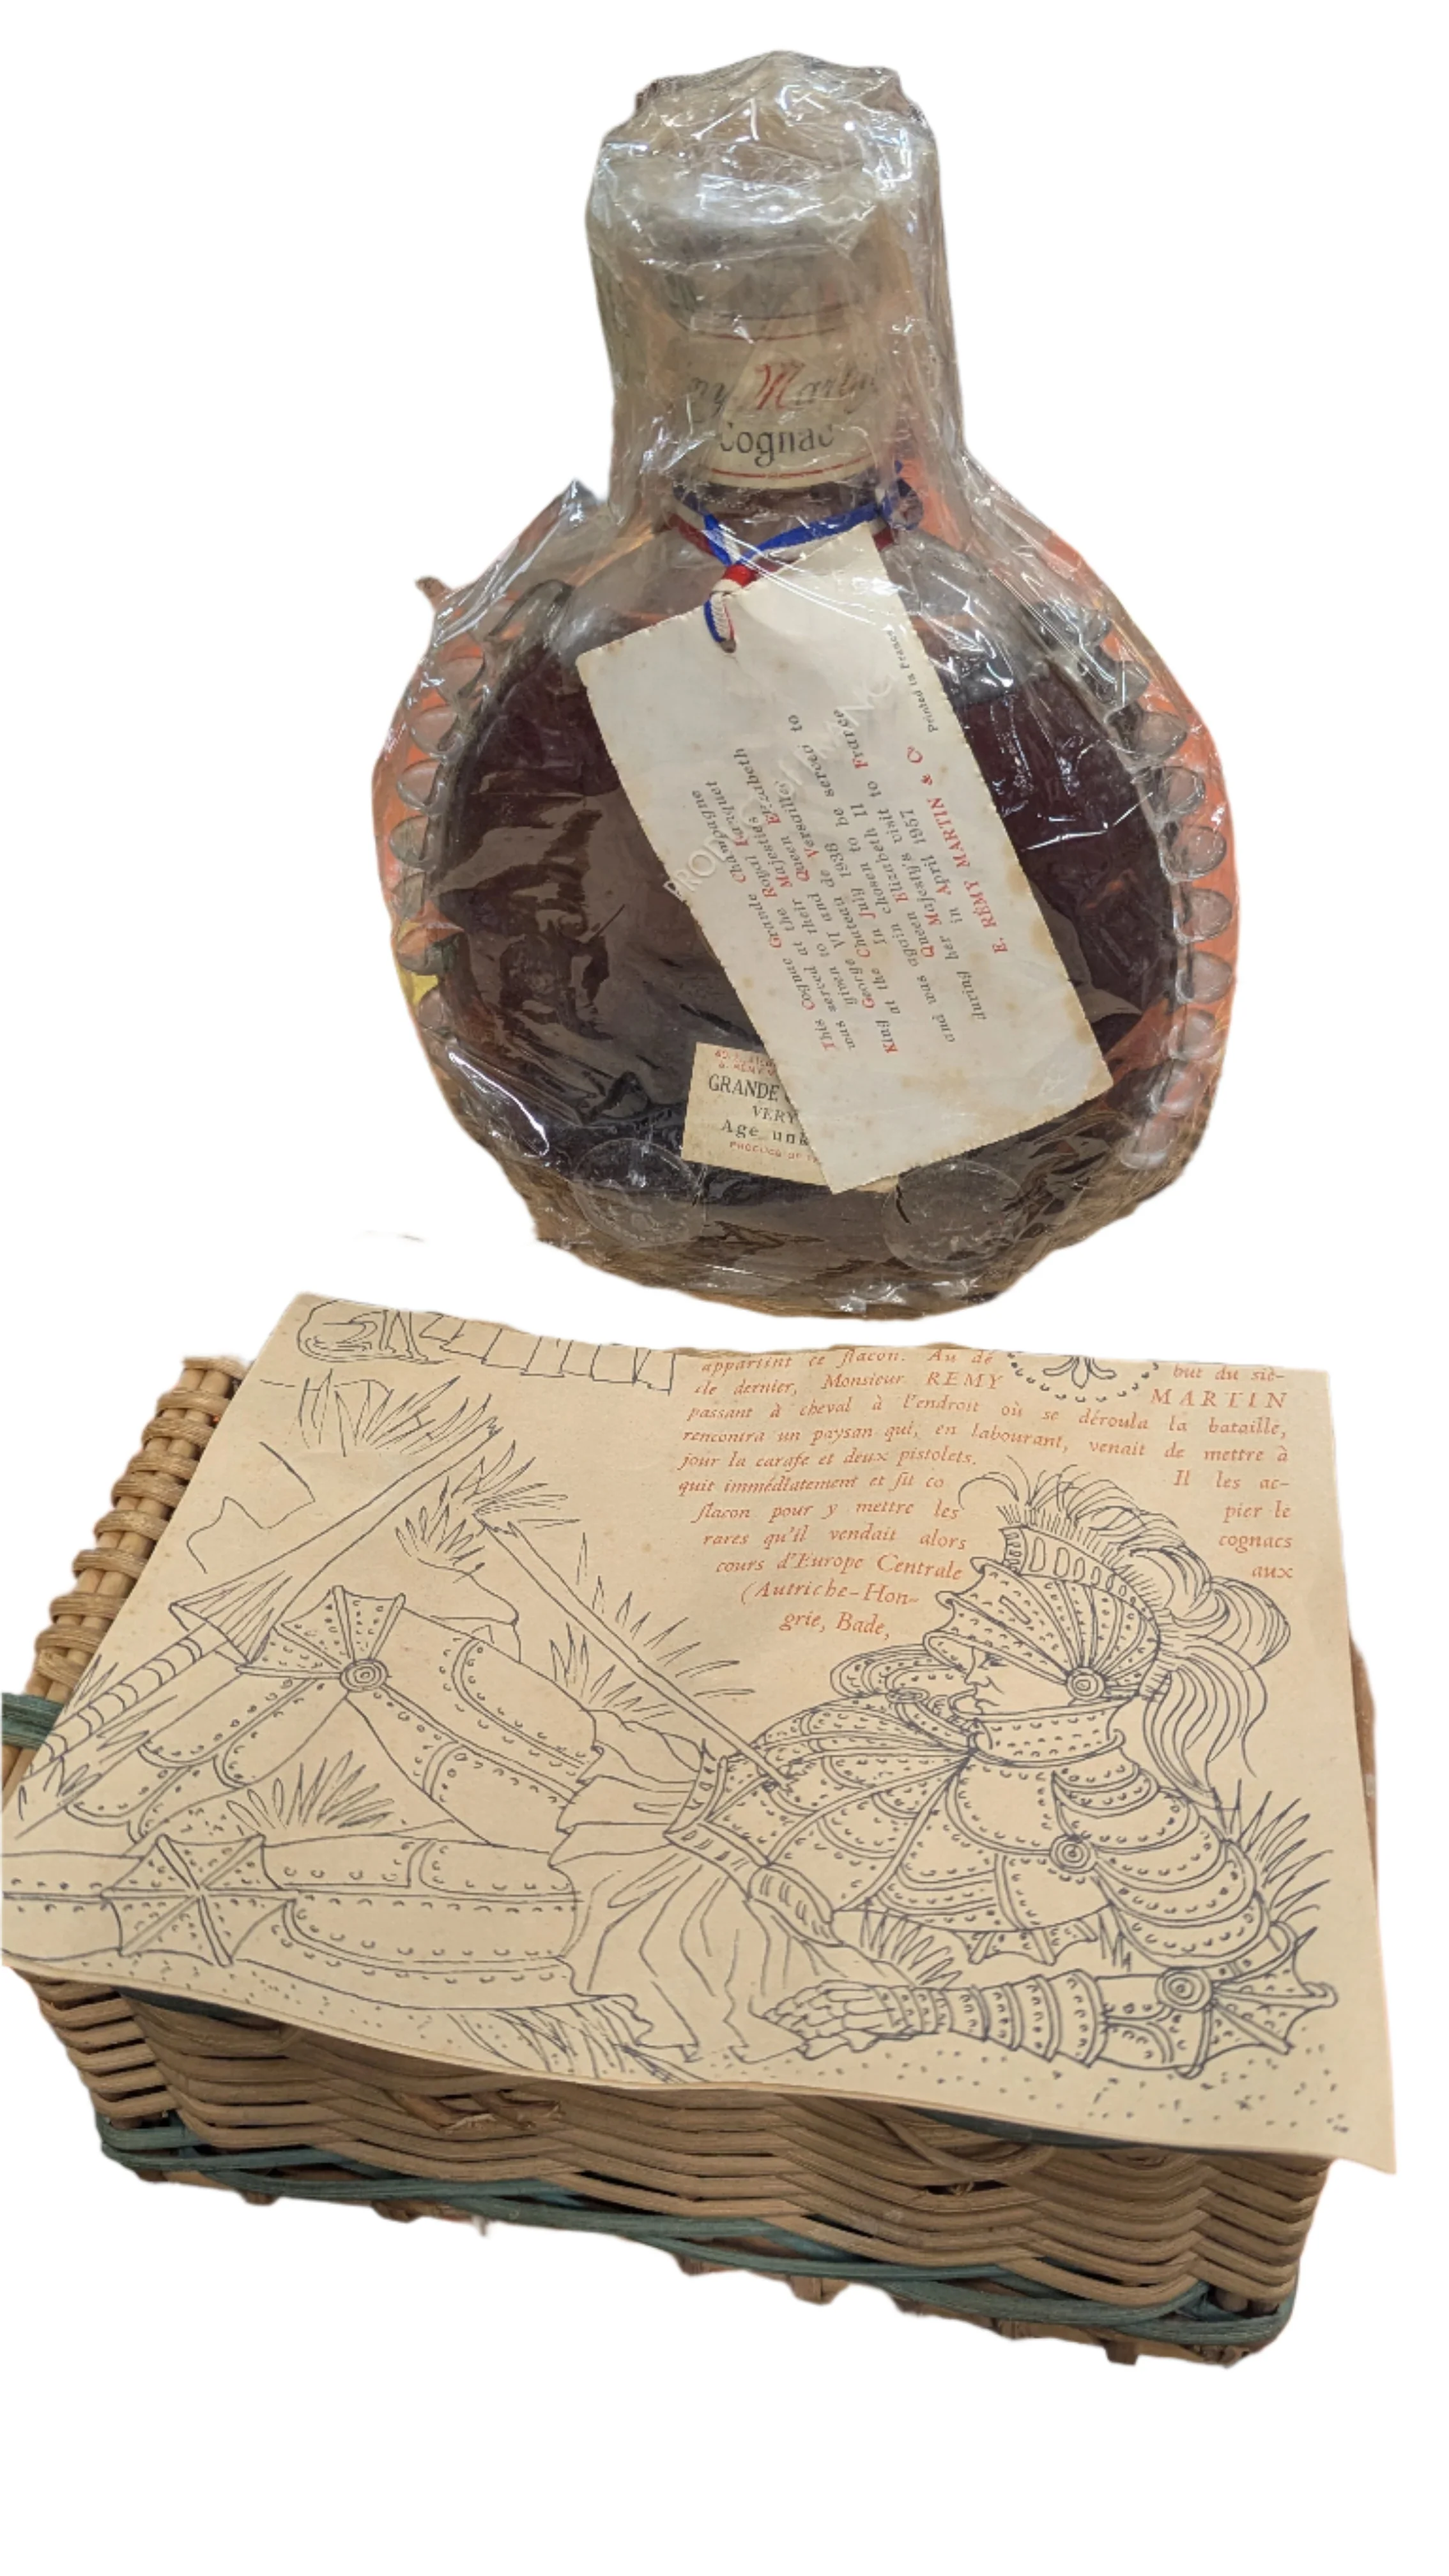 Martin
Cognac
Printed in France
This Cognac Grande Champagne
was served at the Royal Banquet
given to their Majesties
King George VI and Queen Elizabeth
at the Chateau de Versailles
in July 1938
and was again chosen to be served to
Queen Elizabeth II
during her Majesty's visit to France
in April 1957
E. RÉMY MARTIN & Co
GRANDE
VERY
Age unk
PRODUCE OF
appartint ce flacon. Au dé but du siè-
cle dernier, Monsieur REMY MARTIN
passant à cheval à l'endroit où se déroula la bataille,
rencontra un paysan qui, en labourant, venait de mettre à
jour la carafe et deux pistolets. Il les ac-
quit immédiatement et fit co pier le
flacon pour y mettre les cognacs
rares qu'il vendait alors aux
cours d'Europe Centrale
(Autriche-Hon-
grie, Bade,